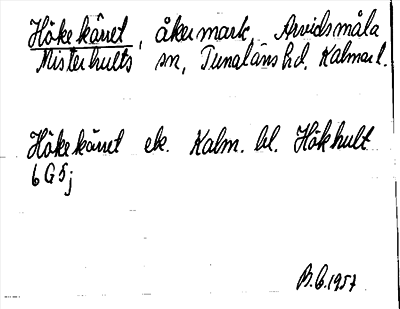 Hökekärret, åkermark, Arvidsmåla
Misterhults sn, Tunaläns hd. Kalmar l.
Hökekärret ek. Kalm. bl. Hökhult
6G5j
B.G.1957